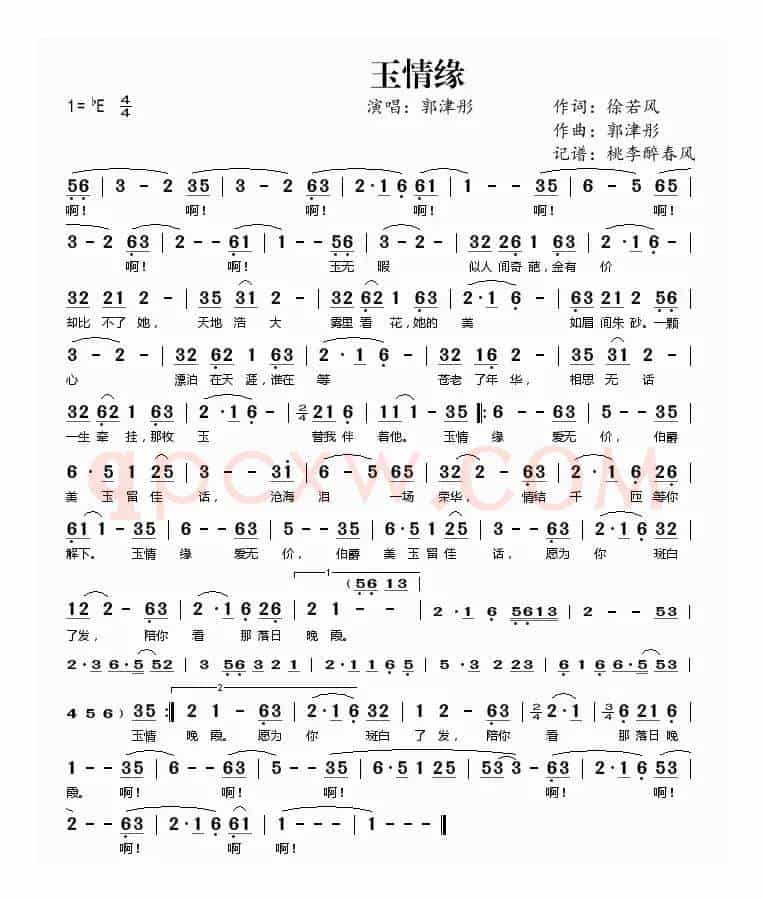 玉情缘
1=♭E 4/4 演唱：郭津彤 作词：徐若风
作曲：郭津彤
记谱：桃李醉春风
56 | 3 - 2 35 | 3 - 2 63 | 2·1 6 61 | 1 - - 35 | 6 - 5 65 |
啊！ 啊！ 啊！ 啊！ 啊！ 啊！
3 - 2 63 | 2 - - 61 | 1 - - 56 | 3 - 2 - | 32 26 1 63 | 2·1 6 - |
啊！ 啊！ 玉无 暇 似人 间奇 葩，金有 价
32 21 2 - | 35 31 2 - | 32 62 1 63 | 2·1 6 - | 32 21 2 56 |
却比 不了 她， 天地 浩 大 雾里 看 花，她的 美 如眉 间朱 砂。一颗
3 - 2 - | 32 62 1 63 | 2·1 6 - | 32 16 2 - | 35 31 2 - |
心 漂泊 在天 涯，谁在 等 苍老 了年 华， 相思 无 话
32 62 1 63 | 2·1 6 - | 2/4 21 6 | 11 1 - 35 |: 6 - - 63 | 5 - - 35 |
一生 牵 挂，那枚 玉 替我 伴 着他。 玉情 缘 爱无 价， 伯爵
6·5 1 25 | 3 - - 31 | 6 - 5 65 | 3 - - 63 | 2·1 6 26 |
美 玉 留 佳 话， 沧海 泪 一场 荣华， 情结 千 回 等你
61 1 - 35 | 6 - - 63 | 5 - - 35 | 6·5 1 25 | 3 - - 63 | 2·1 6 32 |
解下。 玉情 缘 爱无 价， 伯爵 美 玉 留 佳 话， 愿为 你 斑白
1 (56 13
12 2 - 63 | 2·1 6 26 | 2 1 - - | 2·1 6 5613 | 2 - - 53 |
了发， 陪你 看 那 落日 晚 霞。
2·3 6·5 52 | 3 56 3 2 1 | 2·1 2 6 5 | 5·3 23 | 61 6 6·5 53 |
2
4 5 6 ) 35 :| 2 1 - 63 | 2·1 6 32 | 1 2 - 63 | 2/4 2·1 | 3/4 6 21 6 |
玉情 晚 霞。 愿为 你 斑白 了 发， 陪你 看 那 落日 晚
1 - - 35 | 6 - - 63 | 5 - - 35 | 6·5 1 25 | 53 3 - 63 | 2·1 6 63 |
霞。 啊！ 啊！ 啊！ 啊！ 啊！
2 - - 63 | 2·1 6 61 | 1 - - - | 1 - - - ‖
啊！ 啊 啊！
qpcxw.COM